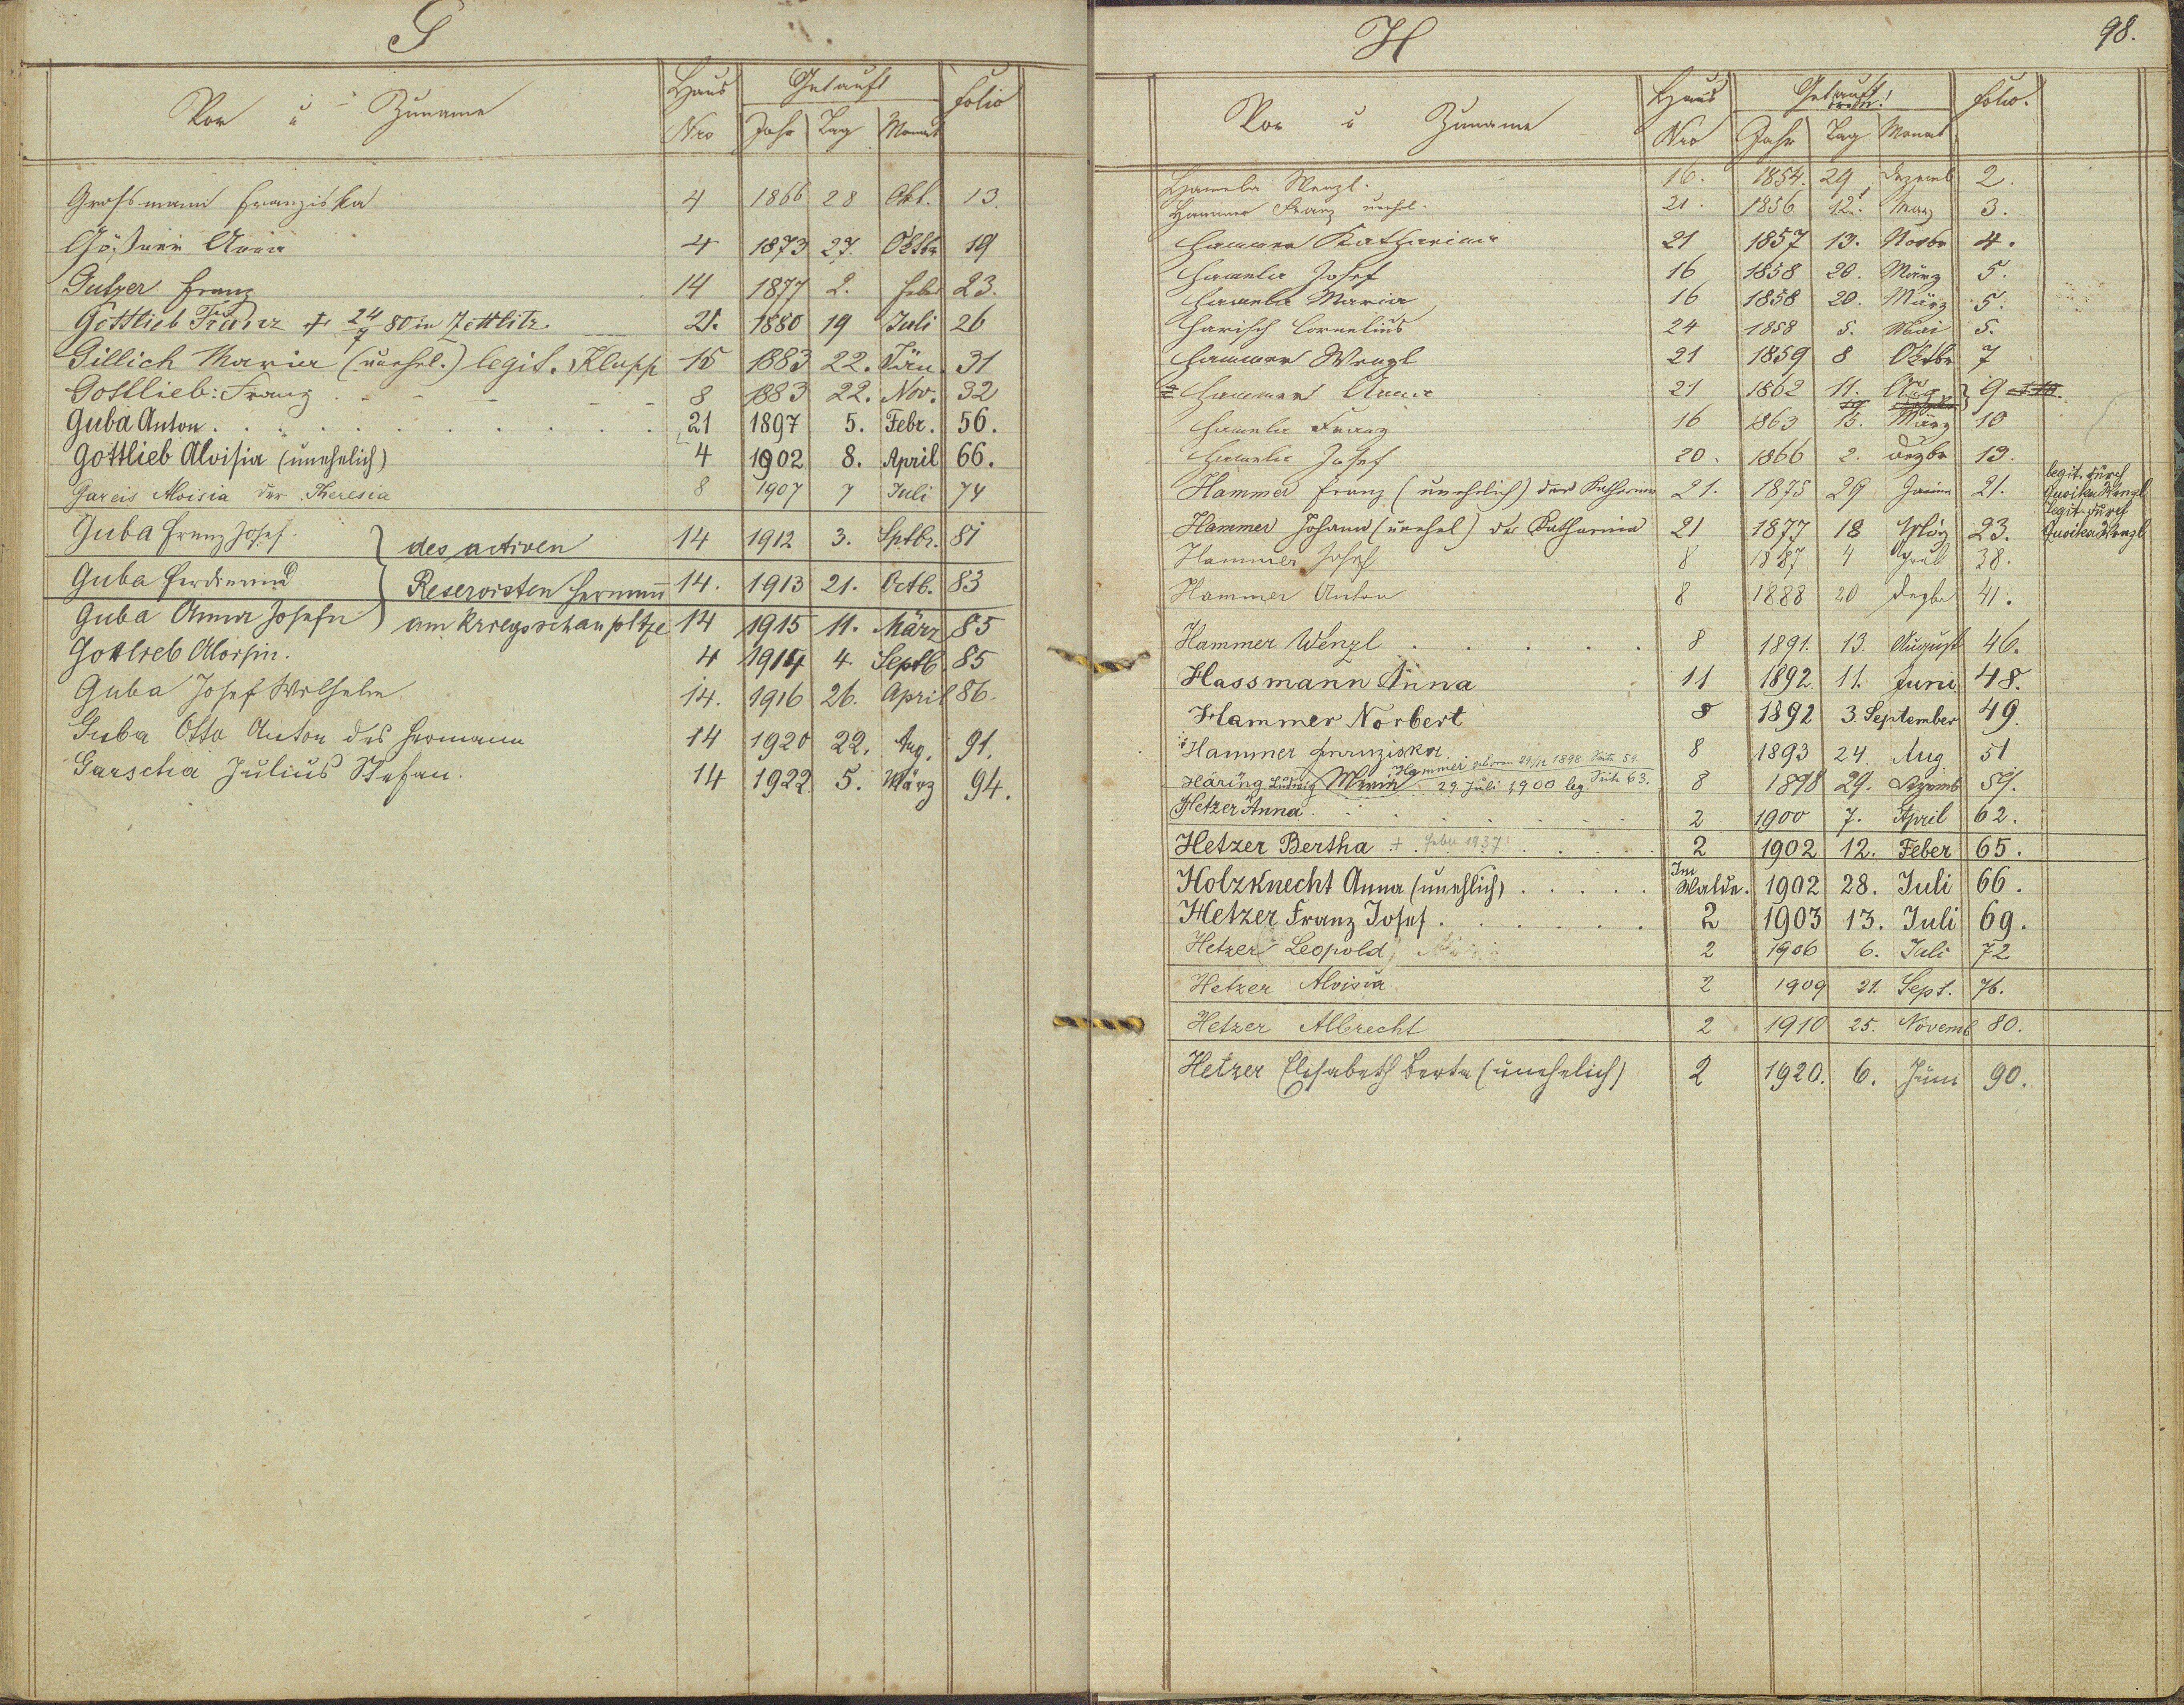 G
Vor u Zuname Haus Nro Getauft Jahr Tag Monat Folio
Grossmann Franziska 4 1866 28 Okt. 13.
Gößner Anna 4 1873 27. Oktbr 19
Gulzer Franz 14 1877 2. Feber 23.
Gottlieb Franz † 24/7 80 in Zettlitz 21. 1880 19 Juli 26
Gillich Maria (unehel.) legit. Klupp 15 1883 22. Jän. 31
Gottlieb: Franz 8 1883 22. Nov. 32
Guba Anton 21 1897 5. Febr. 56.
Gottlieb Aloisia (unehelich) 4 1902 8. April 66.
Gareis Aloisia der Theresia 8 1907 7 Juli 74
Guba Franz Josef. 14 1912 3. Sptbr. 81
des activen
Guba Ferdinand Reservisten Hermann 14. 1913 21. Octb. 83
Guba Anna Josefa am Kriegsschaupltze 14 1915 11. März 85
Gottlieb Aloisia. 4 1914 4. Septb. 85
Guba Josef Wilhelm 14. 1916 26. April 86.
Guba Otto Anton des Hermann 14 1920 22. Aug. 91.
Garscha Julius Stefan. 14 1922 5. März 94.
H
98.
Vor u Zuname Haus Nro Getauft Jahr Tag Monat Folio.
Hamela Wenzl. 16. 1854. 29 Dezemb 2.
Hammer Franz unehel. 21. 1856 12. März 3.
Hammer Katharina 21 1857 13. Novbr 4.
Hamela Josef 16 1858 20. März 5.
Hamela Maria 16 1858 20. März 5.
Harisch Cornelius 24 1858 5. Mai 5.
Hammer Wenzl 21 1859 8 Oktbr 7
Hammer Anna 21 1862 11. Aug 9
Hamela Franz 16 1863 15. März 10
Hamela Josef 20. 1866 2. Dezbr 13.
Hammer Franz (unehelich) der Katharina 21. 1875 29 21. legit. durch Quoika Wenzl
Hammer Johann (unehel) der Katharina 21 1877 18 März 23. legit. durch Quoika Wenzl
Hammer Josef 8 1887 4 April 38.
Hammer Anton 8 1888 20 Dezbr 41.
Hammer Wenzl 8 1891. 13. August 46.
Hassmann Anna 11 1892. 11. Juni 48.
Hammer Norbert 8 1892 3. September 49.
Hammer Franziska 8 1893 24. Aug. 51
Hammer geboren 29/12 1898 Seite 59.
Häring Ludwig 29. Juli 1900 leg. Seite 63. 8 1898 29. Dezemb 59.
Hetzer Anna 2 1900 7. April 62.
Hetzer Bertha + Feber 1937 2 1902 12. Feber 65.
Holzknecht Anna (unehlich) Im Walde. 1902 28. Juli 66.
Hetzer Franz Josef 2 1903 13. Juli 69.
Hetzer Leopold 2 1906 6. Juli 72
Hetzer Aloisia 2 1909 21. Sept. 76.
Hetzer Albrecht 2 1910 25. Novemb 80.
Hetzer Elisabeth Berta (unehelich) 2 1920. 6. Juni 90.